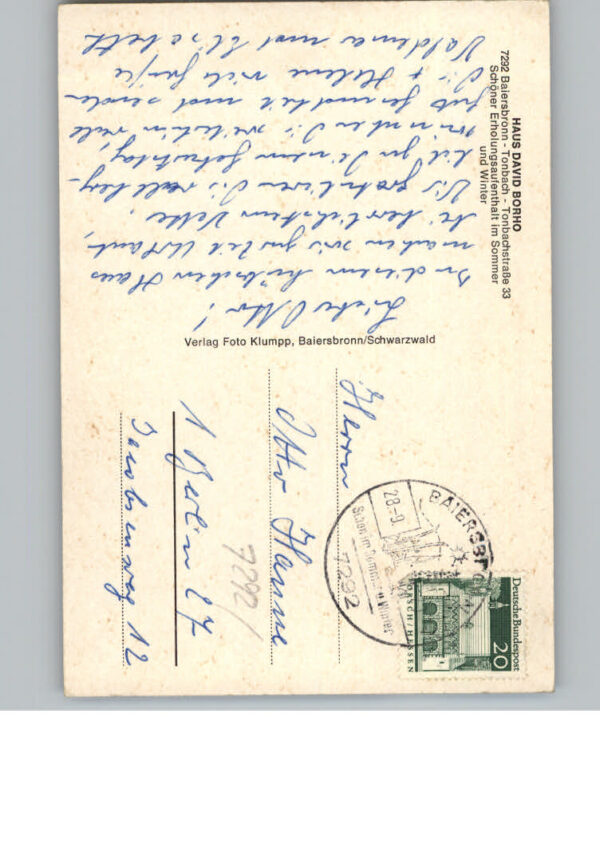 HAUS DAVID BORHO
7292 Baiersbronn - Tonbach - Tonbachstraße 33
Schöner Erholungsaufenthalt im Sommer
und Winter
Lieber Otto!
In diesem hübschen Haus
machen wir zur Zeit Urlaub,
bei herrlichstem Wetter.
Wir gratulieren Dir recht herz-
lich zu Deinem Geburtstag,
wünschen Dir weiterhin recht
gute Gesundheit und senden
Dir + Helene viele Grüße
und Elisabeth
Verlag Foto Klumpp, Baiersbronn/Schwarzwald
Herrn
Otto Hanne
1 Berlin 27
12
7292/
BAIERSBR
28.-9.
Schön im Sommer u Winter
7292
Deutsche Bundespost
20
LORSCH/HESSEN